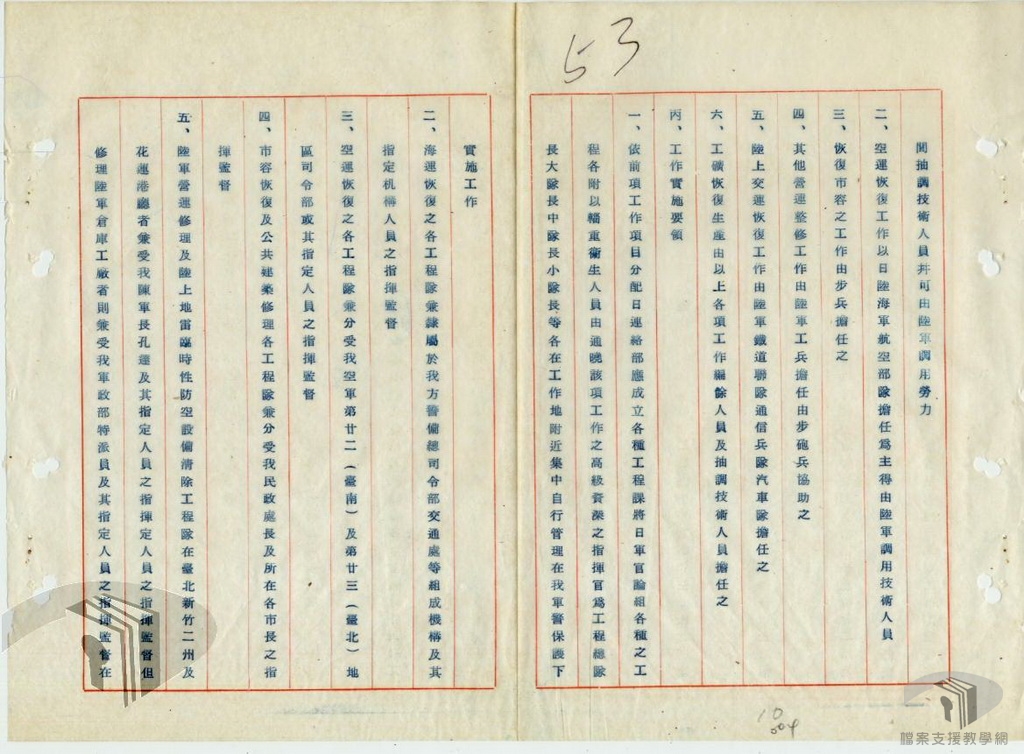 53
関抽調技術人員幷可由陸軍調用勞力
二、空運恢復工作以日陸海軍航空部隊擔任爲主得由陸軍調用技術人員
三、恢復市容之工作由步兵擔任之
四、其他營運整修工作由陸軍工兵擔任由步砲兵協助之
五、陸上交運恢復工作由陸軍鐵道聯隊通信兵隊汽車隊擔任之
六、工礦恢復生產由以上各項工作編餘人員及抽調技術人員擔任之
丙、工作實施要領
一、依前項工作項目分配日連絡部應成立各種工程課將日軍官諭組各種之工
程各附以輜重衛生人員由通曉該項工作之高級資深之指揮官爲工程總隊
長大隊長中隊長小隊長等各在工作地附近集中自行管理在我軍警保護下
實施工作
二、海運恢復之各工程隊兼隸屬於我方警備總司令部交通處等組成機構及其
指定机構人員之指揮監督
三、空運恢復之各工程隊兼分受我空軍第廿二（臺南）及第廿三（臺北）地
區司令部或其指定人員之指揮監督
四、市容恢復及公共建築修理各工程隊兼分受我民政處長及所在各市長之指
揮監督
五、陸軍營運修理及陸上地雷臨時性防空設備清除工程隊在臺北新竹二州及
花蓮港廳者兼受我陳軍長孔達及其指定人員之指揮定人員之指揮監督但
修理陸軍倉庫工廠者則兼受我軍政部特派員及其指定人員之指揮監督在
10
004
檔案支援教學網